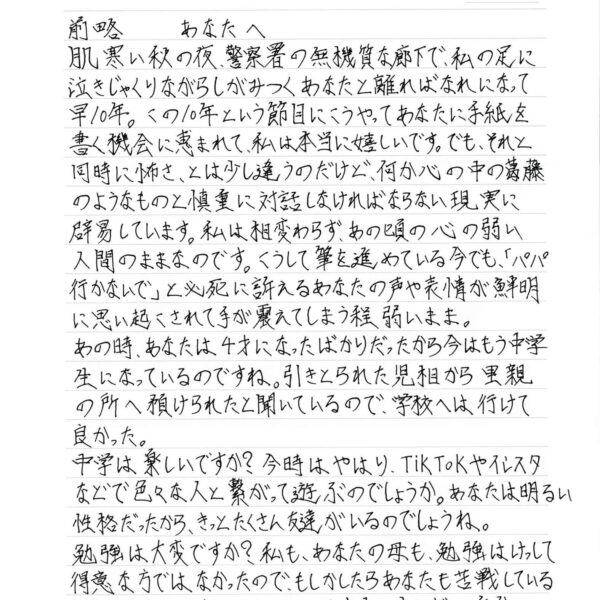 前略　あなたへ
肌寒い秋の夜、警察署の無機質な廊下で、私の足に
泣きじゃくりながらしがみつくあなたと離ればなれになって
早10年。この10年という節目にこうやってあなたに手紙を
書く機会に恵まれて、私は本当に嬉しいです。でも、それと
同時に怖さ、とは少し違うのだけど、何か心の中の葛藤
のようなものと慎重に対話しなければならない現実に
辟易しています。私は相変わらず、あの頃の心の弱い
人間のままなのです。こうして筆を進めている今でも、「パパ
行かないで」と必死に訴えるあなたの声や表情が鮮明
に思い起こされて手が震えてしまう程、弱いまま。
あの時、あなたは4才になったばかりだったから今はもう中学
生になっているのですね。引きとられた児相から里親
の所へ預けられたと聞いているので、学校へは行けて
良かった。
中学は楽しいですか？今時はやはり、TikTokやインスタ
などで色々な人と繋がって遊ぶのでしょうか。あなたは明るい
性格だったから、きっとたくさん友達がいるのでしょうね。
勉強は大変ですか？私も、あなたの母も、勉強はけっして
得意な方ではなかったので、もしかしたらあなたも苦戦している